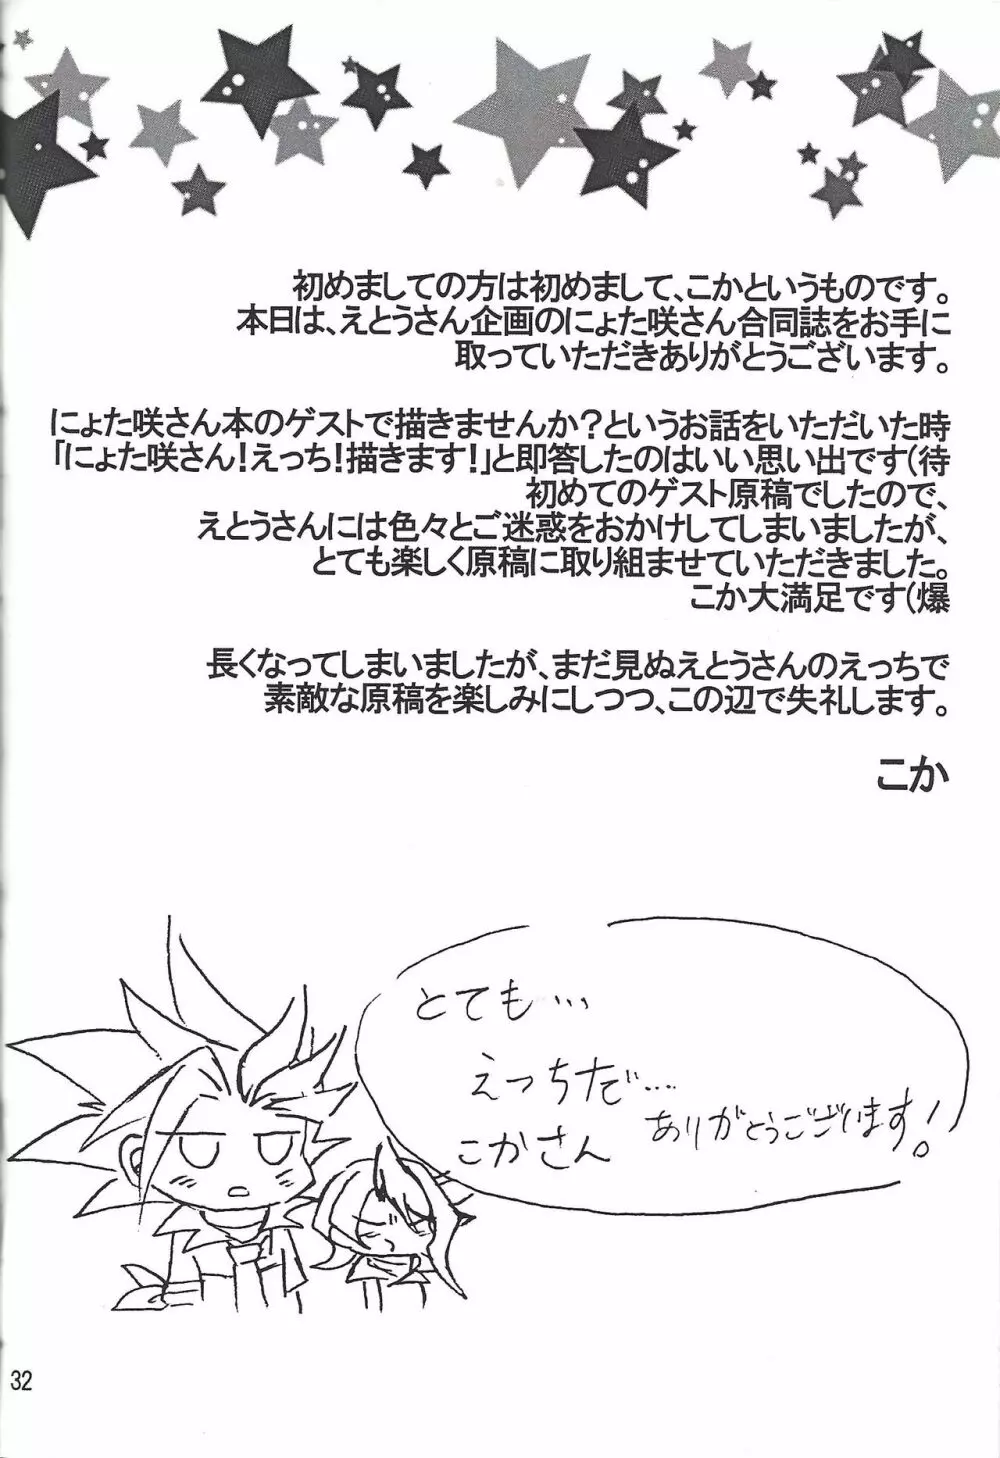 初めましての方は初めまして、こかというものです。
本日は、えとうさん企画のにょた咲さん合同誌をお手に
取っていただきありがとうございます。
にょた咲さん本のゲストで描きませんか?というお話をいただいた時
「にょた咲さん!えっち!描きます!」と即答したのはいい思い出です(待
初めてのゲスト原稿でしたので、
えとうさんには色々とご迷惑をおかけしてしまいましたが、
とても楽しく原稿に取り組ませていただきました。
こか大満足です(爆
長くなってしまいましたが、まだ見ぬえとうさんのえっちで
素敵な原稿を楽しみにしつつ、この辺で失礼します。
こか
とても…
えっちだ…
こかさん ありがとうございます!
32